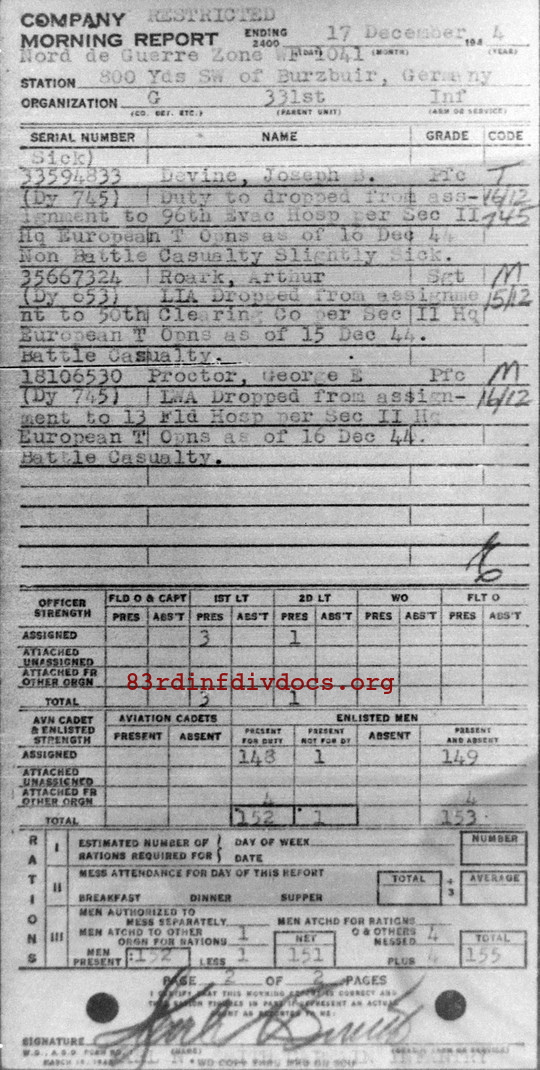 COMPANY RESTRICTED
MORNING REPORT ENDING 2400 17 December 194 4
(DAY) (MONTH) (YEAR)
Nord de Guerre Zone WF 1041
STATION 800 Yds SW of Burzbuir, Germany
ORGANIZATION G 331st Inf
(CO. DET. ETC.) (PARENT UNIT) (ARM OR SERVICE)
SERIAL NUMBER NAME GRADE CODE
Sick)
33594833 Devine, Joseph B. Pfc T
(Dy 745) Duty to dropped from ass- 16/12
ignment to 96th Evac Hosp per Sec II 745
Hq European T Opns as of 16 Dec 44
Non Battle Casualty Slightly Sick.
35667324 Roark, Arthur Sgt M
(Dy 653) LIA Dropped from assignme 15/12
nt to 50th Clearing Co per Sec II Hq
European T Opns as of 15 Dec 44.
Battle Casualty.
18106530 Proctor, George E Pfc M
(Dy 745) LWA Dropped from assign- 16/12
ment to 13 Fld Hosp per Sec II Hq
European T Opns as of 16 Dec 44.
Battle Casualty.
OFFICER STRENGTH FLD O & CAPT 1ST LT 2D LT WO FLT O
PRES ABS'T PRES ABS'T PRES ABS'T PRES ABS'T PRES ABS'T
ASSIGNED 3 1
ATTACHED UNASSIGNED
ATTACHED FR OTHER ORGN
83rdinfdivdocs.org
TOTAL 3 1
AVN CADET & ENLISTED STRENGTH AVIATION CADETS ENLISTED MEN
PRESENT ABSENT PRESENT FOR DUTY PRESENT NOT FOR DY ABSENT PRESENT AND ABSENT
ASSIGNED 148 1 149
ATTACHED UNASSIGNED
ATTACHED FR OTHER ORGN 4 4
TOTAL 152 1 153
RATIONS
I ESTIMATED NUMBER OF RATIONS REQUIRED FOR DAY OF WEEK DATE NUMBER
II MESS ATTENDANCE FOR DAY OF THIS REPORT TOTAL ÷ 3 AVERAGE
BREAKFAST DINNER SUPPER
III MEN AUTHORIZED TO MESS SEPARATELY MEN ATCHD FOR RATIONS
MEN ATCHD TO OTHER ORGN FOR RATIONS 1 NET O & OTHERS MESSED 4 TOTAL
MEN PRESENT 152 LESS 1 151 PLUS 4 155
PAGE 2 OF 2 PAGES
I CERTIFY THAT THIS MORNING REPORT IS CORRECT AND
SIGNATURE
W.D., A.G.O. FORM NO. 1 (NAME)